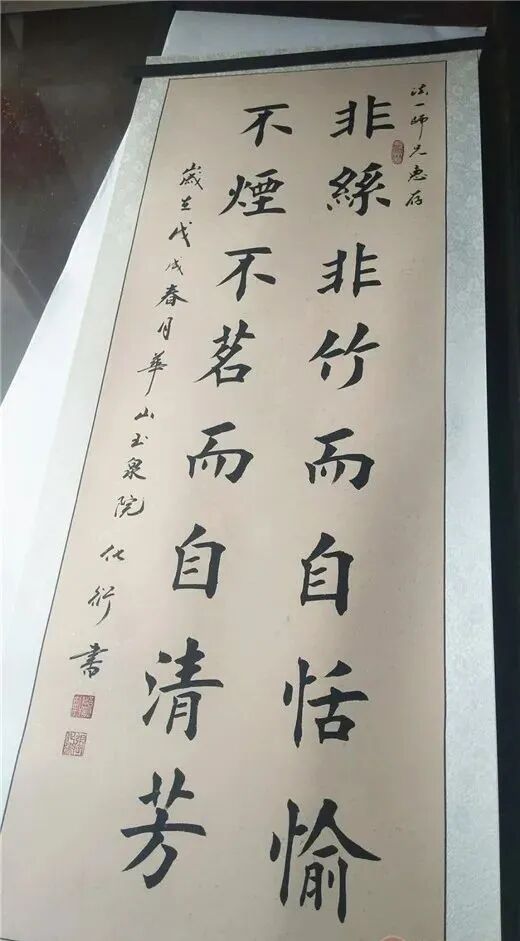 法一師兄惠存
非絲非竹而自恬愉
不煙不茗而自清芳
歲在戊戌春月華山玉泉院化衍書